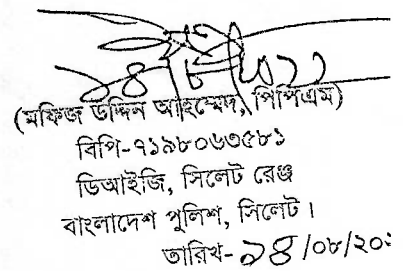 ১৪/৮/২০২২
(মফিজ উদ্দিন আহম্মেদ, পিপিএম)
বিপি-৭১৯৮০৬৩৫৮১
ডিআইজি, সিলেট রেঞ্জ
বাংলাদেশ পুলিশ, সিলেট।
তারিখ- ১৪/০৮/২০২